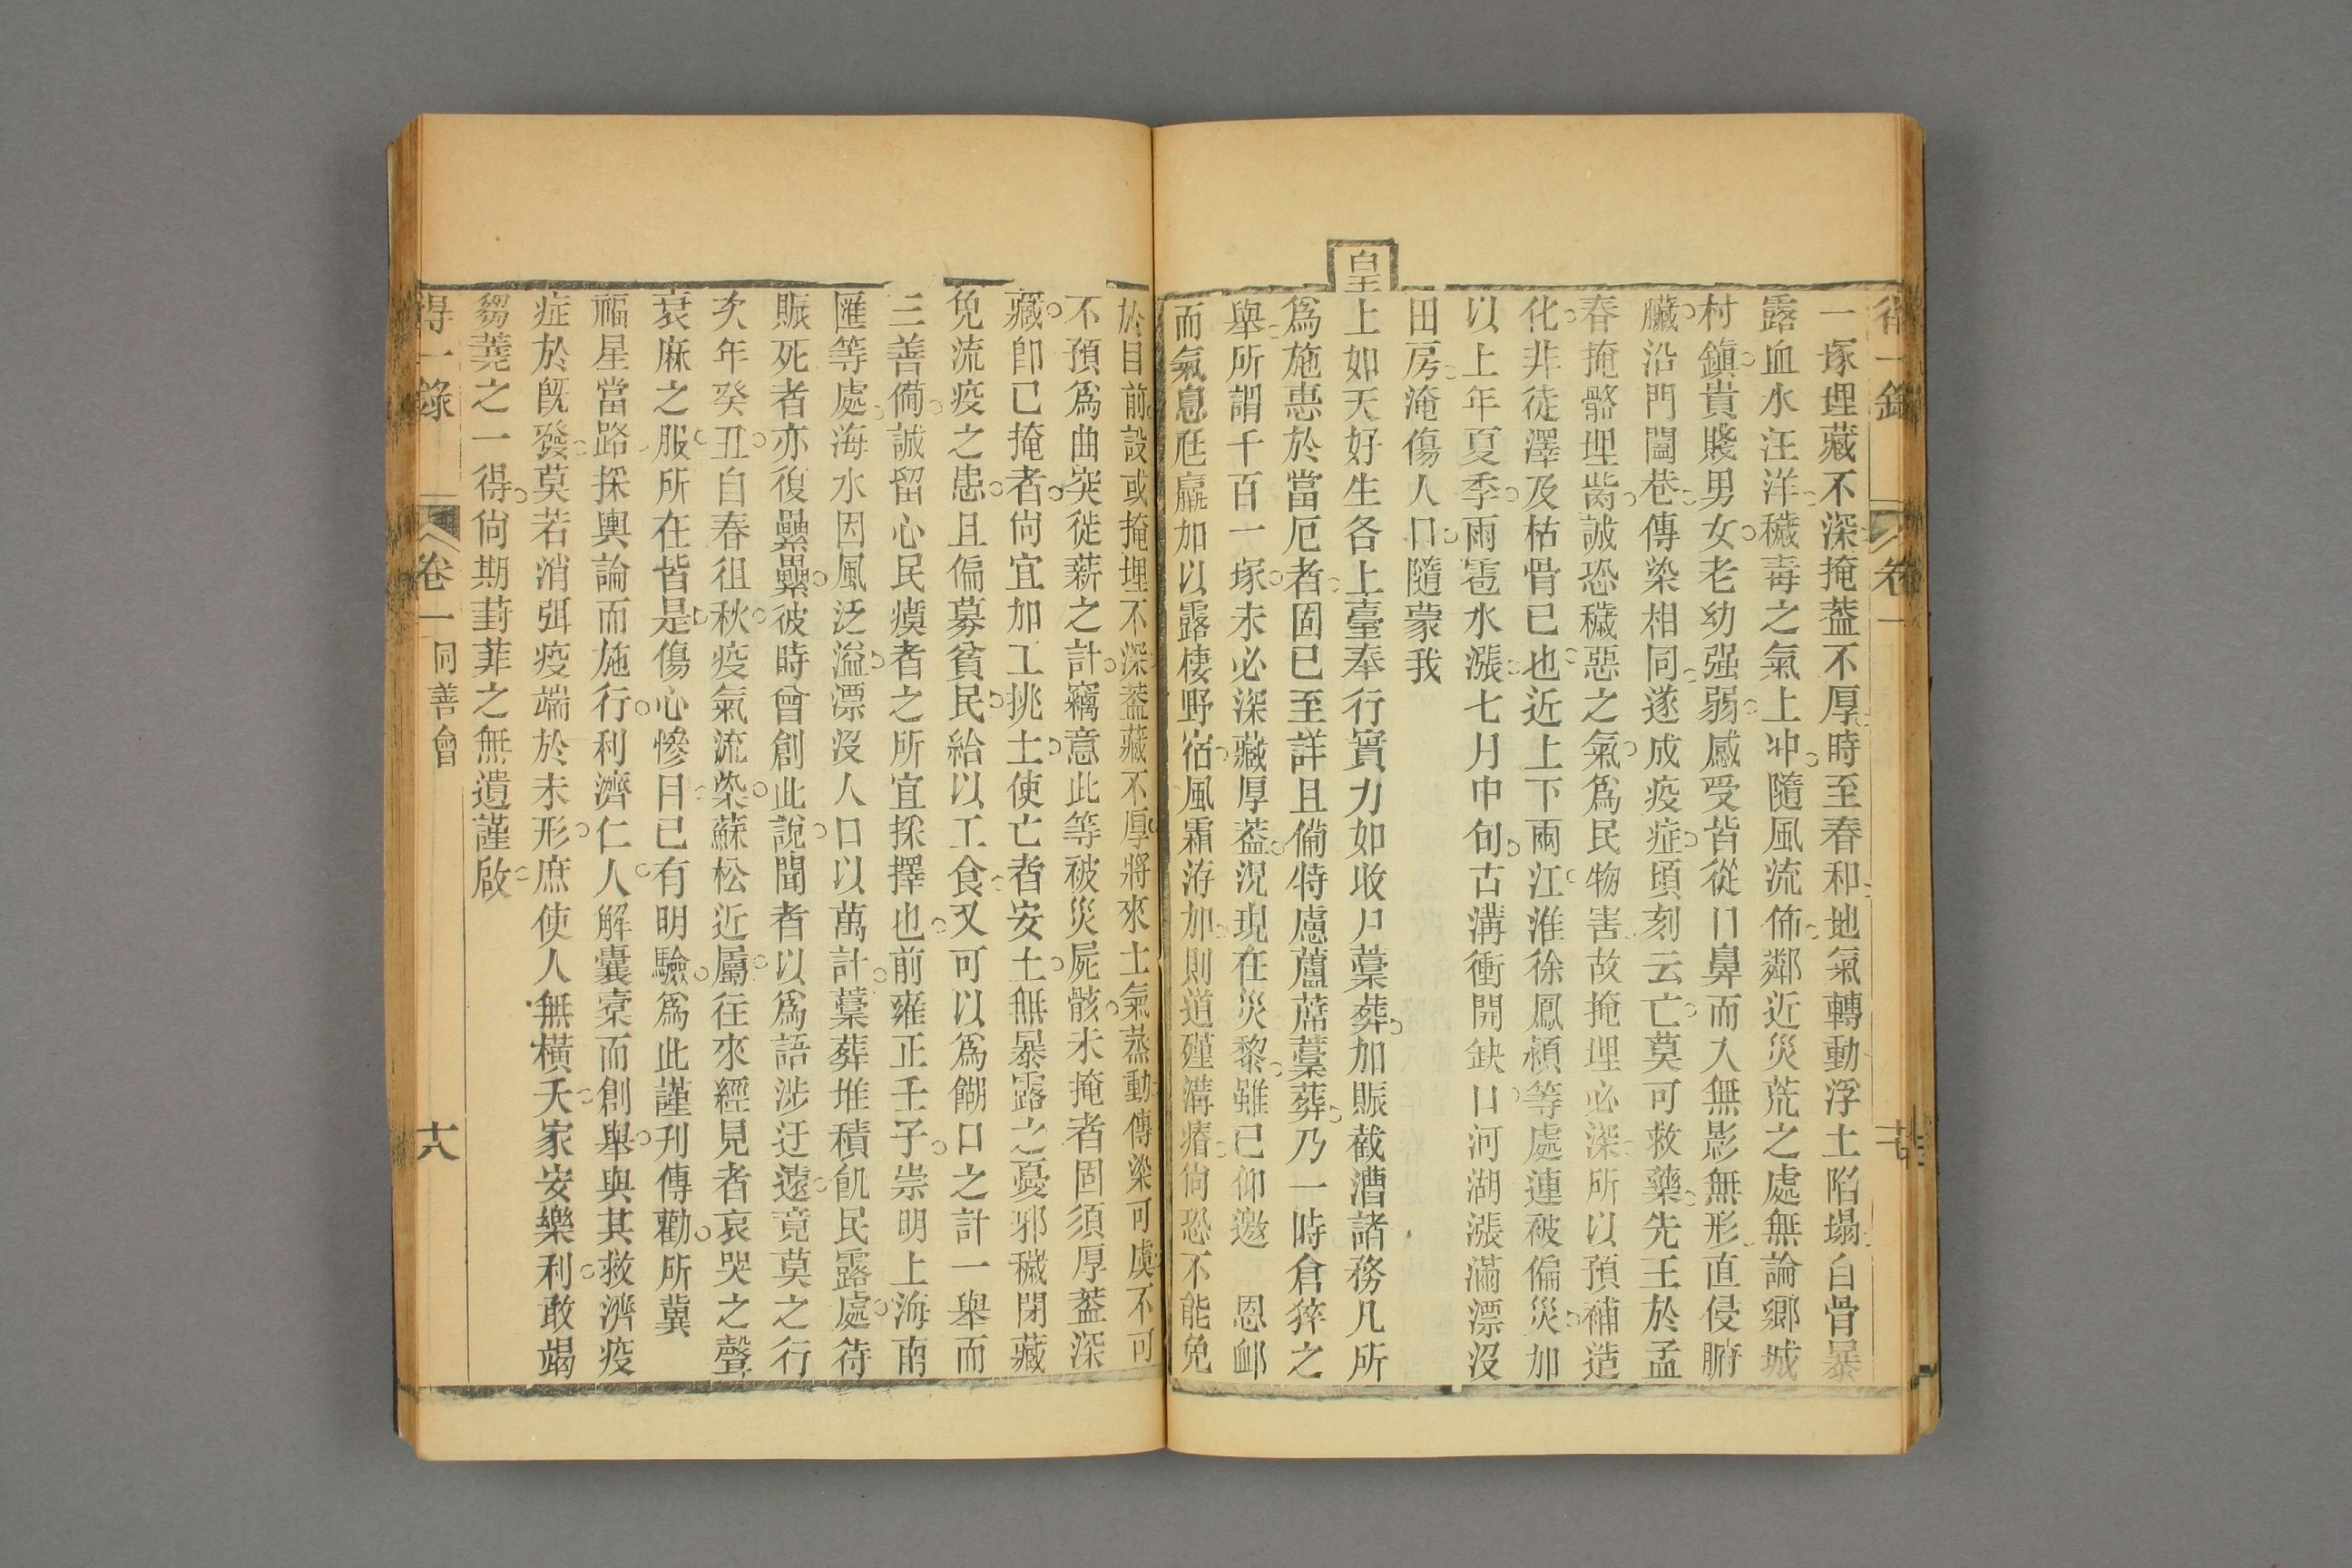 一塚埋藏不深掩葢不厚時至春和地氣轉動浮土陷塌白骨暴
露血水汪洋穢毒之氣上冲隨風流佈鄰近災荒之處無論鄉城
村鎭貴賤男女老幼强弱感受皆從口鼻而入無影無形直侵腑
臟沿門闔巷傳染相同遂成疫症頃刻云亡莫可救藥先王於孟
春掩骼埋胔誠恐穢惡之氣爲民物害故掩埋必深所以預補造
化非徒澤及枯骨已也近上下兩江淮徐鳳潁等處連被偏災加
以上年夏季雨雹水漲七月中旬古溝衝開缺口河湖漲滿漂沒
田房淹傷人口隨蒙我
皇上如天好生各上臺奉行實力如收尸藁葬加賑截漕諸務凡所
爲施惠於當厄者固已至詳且備特慮蘆蓆藁葬乃一時倉猝之
舉所謂千百一塚未必深藏厚葢況現在災黎雖已仰邀 恩卹
而氣息尫羸加以露棲野宿風霜洊加則道殣溝瘠尙恐不能免
於目前設或掩埋不深葢藏不厚將來土氣蒸動傳染可虞不可
不預爲曲突徙薪之計竊意此等被災屍骸未掩者固須厚葢深
藏卽已掩者尙宜加工挑土使亡者安土無暴露之憂邪穢閉藏
免流疫之患且偏募貧民給以工食又可以爲餬口之計一舉而
三善備誠留心民瘼者之所宜採擇也前雍正壬子崇明上海南
匯等處海水因風泛溢漂沒人口以萬計藁葬堆積飢民露處待
賑死者亦復纍纍彼時曾創此說聞者以爲語涉迂遠竟莫之行
次年癸丑自春徂秋疫氣流染蘇松近屬往來經見者哀哭之聲
衰麻之服所在皆是傷心慘目已有明驗爲此謹刋傳勸所冀
福星當路採輿論而施行利濟仁人解囊橐而創舉與其救濟疫
症於旣發莫若消弭疫端於未形庶使人無橫夭家安樂利敢竭
芻蕘之一得尙期葑菲之無遺謹啟
得一錄 卷一 同善會 十八